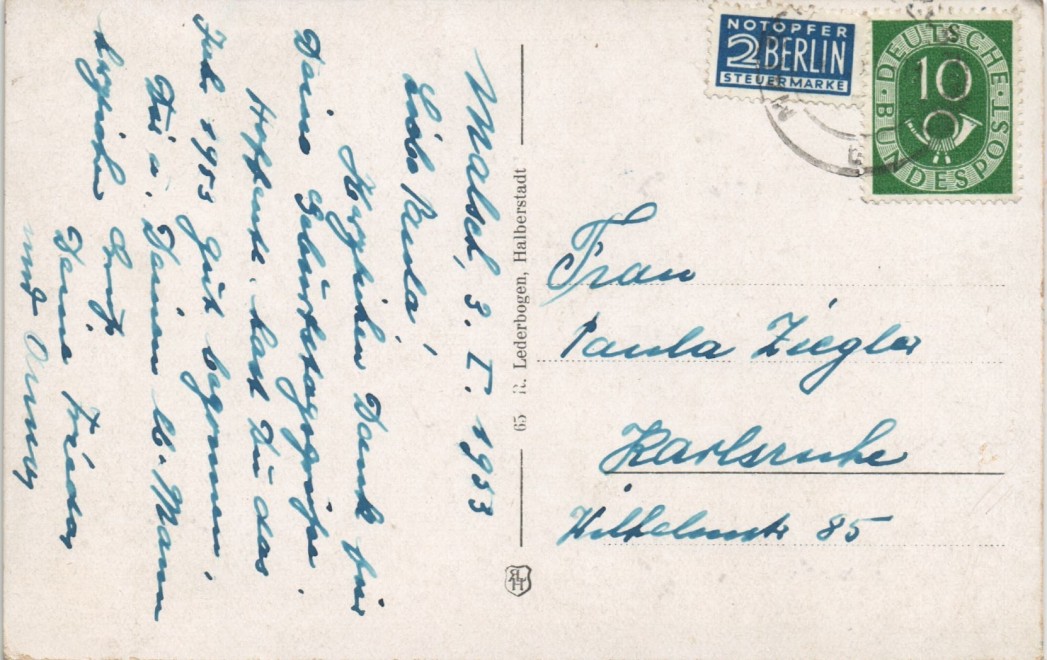 Malsch, 3. I. 1953
Liebe Paula!
Herzlichen Dank für
Deine Geburtstagsgrüße.
Hoffentl. hast Du das
Jahr 1953 gut begonnen.
Dir u. Deinem lb. Mann
herzliche Grüße
Deine Frieda
und
65 R. Lederbogen, Halberstadt
RLH
NOTOPFER
2 BERLIN
STEUERMARKE
DEUTSCHE BUNDESPOST
10
Frau
Paula Ziegler
Karlsruhe
Wilhelmstr 85